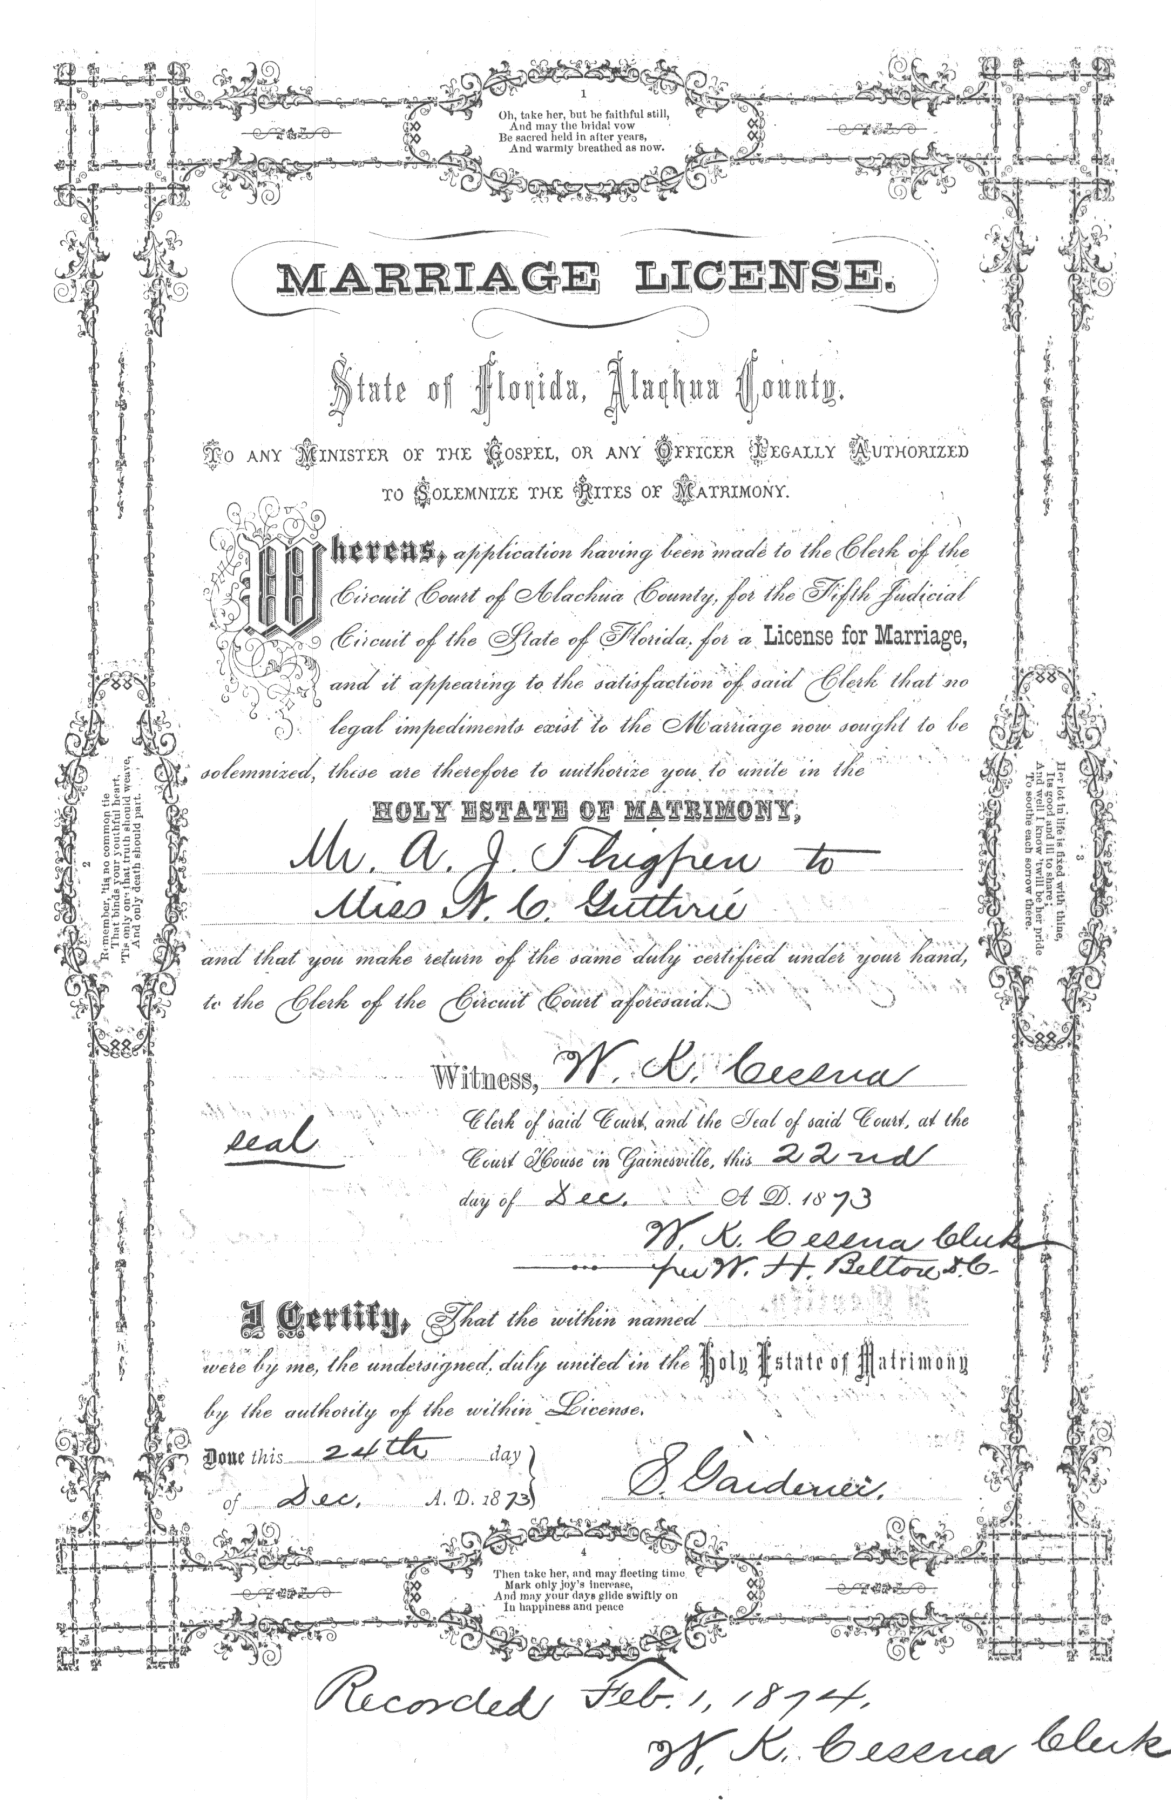 1
Oh, take her, but be faithful still,
And may the bridal vow
Be sacred held in after years,
And warmly breathed as now.
MARRIAGE LICENSE.
State of Florida, Alachua County.
TO ANY MINISTER OF THE GOSPEL, OR ANY OFFICER LEGALLY AUTHORIZED
TO SOLEMNIZE THE RITES OF MATRIMONY.
Whereas, application having been made to the Clerk of the
Circuit Court of Alachua County, for the Fifth Judicial
Circuit of the State of Florida, for a License for Marriage,
and it appearing to the satisfaction of said Clerk that no
legal impediments exist to the Marriage now sought to be
solemnized, these are therefore to authorize you to unite in the
HOLY ESTATE OF MATRIMONY,
Mr. A. J. Thigpen to
Miss N. C. Guthrie
and that you make return of the same duly certified under your hand,
to the Clerk of the Circuit Court aforesaid.
2
Remember, 'tis no common tie
That binds your youthful heart,
'Tis only one that truth should weave,
And only death should part.
3
Her lot in life is fixed with thine,
Its good and ill to share;
And well I know 'twill be her pride
To soothe each sorrow there.
Witness, W. K. Cessna
Clerk of said Court, and the Seal of said Court, at the
seal
Court House in Gainesville, this 22nd
day of Dec. A D. 1873
W. K. Cessna Clerk
per W. H. Belton D.C.
I Certify, That the within named
were by me, the undersigned, duly united in the Holy Estate of Matrimony
by the authority of the within License.
Done this 24th day
of Dec. A. D. 1873
S. Gardener.
4
Then take her, and may fleeting time
Mark only joy's increase,
And may your days glide swiftly on
In happiness and peace
Recorded Feb. 1, 1874.
W. K. Cessna Clerk